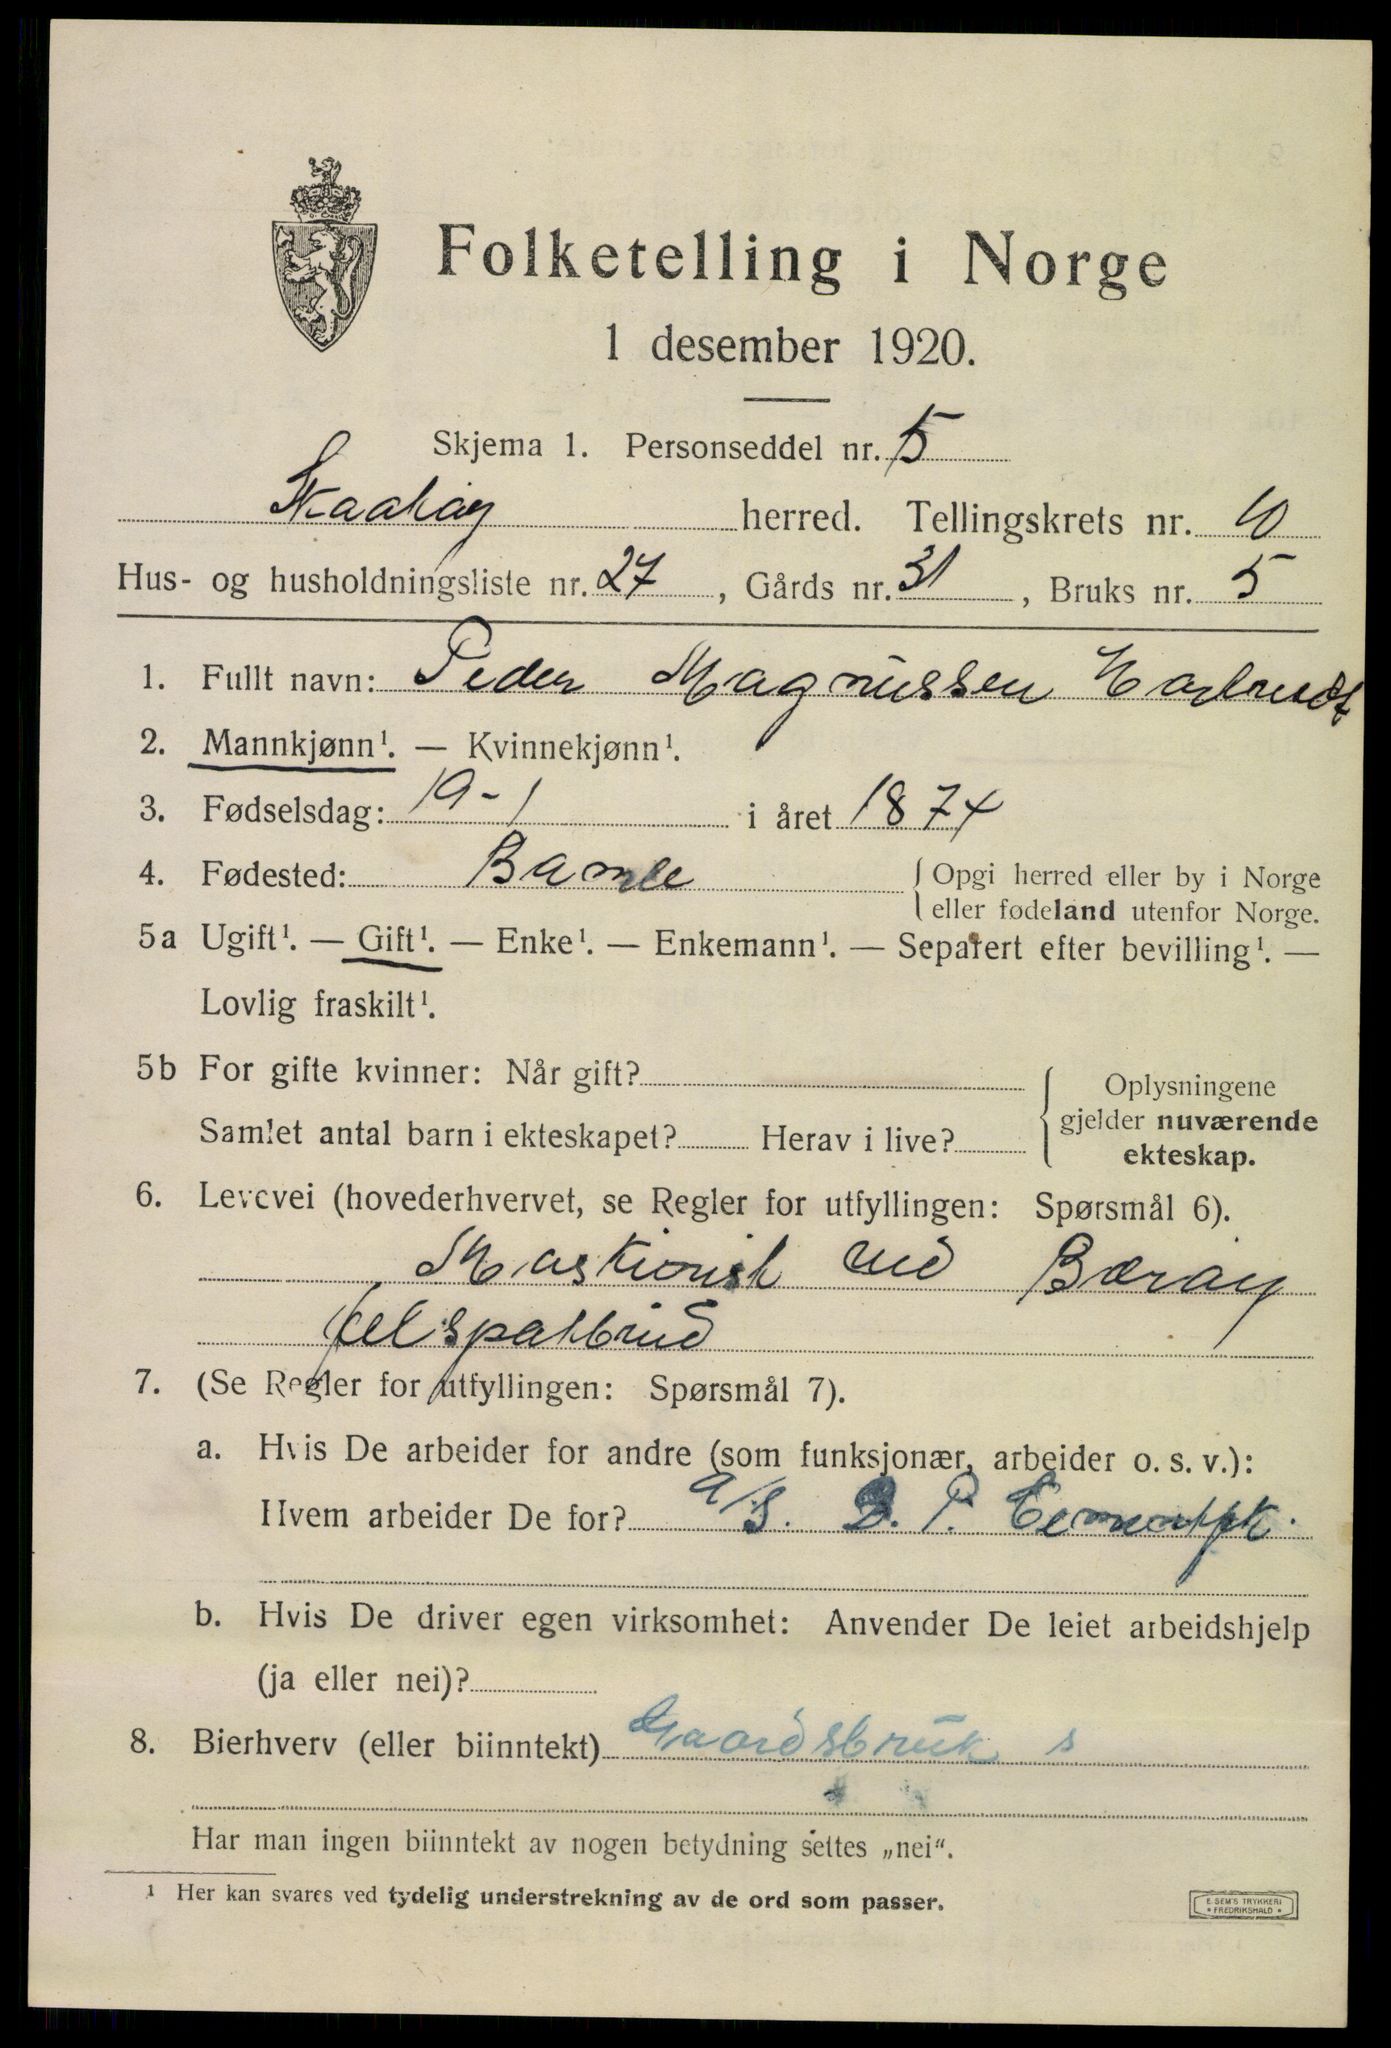 Folketelling i Norge
1 desember 1920.
Skjema 1. Personseddel nr. 5
Skaatøy herred. Tellingskrets nr. 10
Hus- og husholdningsliste nr. 27, Gårds nr. 31, Bruks nr. 5
1. Fullt navn: Peder Magnussen
2. Mannkjønn¹. — Kvinnekjønn¹.
3. Fødselsdag: 19-1 i året 1874
4. Fødested: Bamle { Opgi herred eller by i Norge
eller fødeland utenfor Norge.
5a Ugift¹. — Gift¹. — Enke¹. — Enkemann¹. — Separert efter bevilling¹. —
Lovlig fraskilt¹.
5b For gifte kvinner: Når gift?
Samlet antal barn i ekteskapet? Herav i live?
{ Oplysningene
gjelder nuværende
ekteskap.
6. Levevei (hovederhvervet, se Regler for utfyllingen: Spørsmål 6).
Maskionist ved Bærøy
felspatbrud
7. (Se Regler for utfyllingen: Spørsmål 7).
a. Hvis De arbeider for andre (som funksjonær, arbeider o. s. v.):
Hvem arbeider De for? A/S.
b. Hvis De driver egen virksomhet: Anvender De leiet arbeidshjelp
(ja eller nei)?
8. Bierhverv (eller biinntekt) Gaardsbruk s
Har man ingen biinntekt av nogen betydning settes „nei“.
1 Her kan svares ved tydelig understrekning av de ord som passer.
E. SEM'S TRYKKERI
* FREDRIKSHALD *